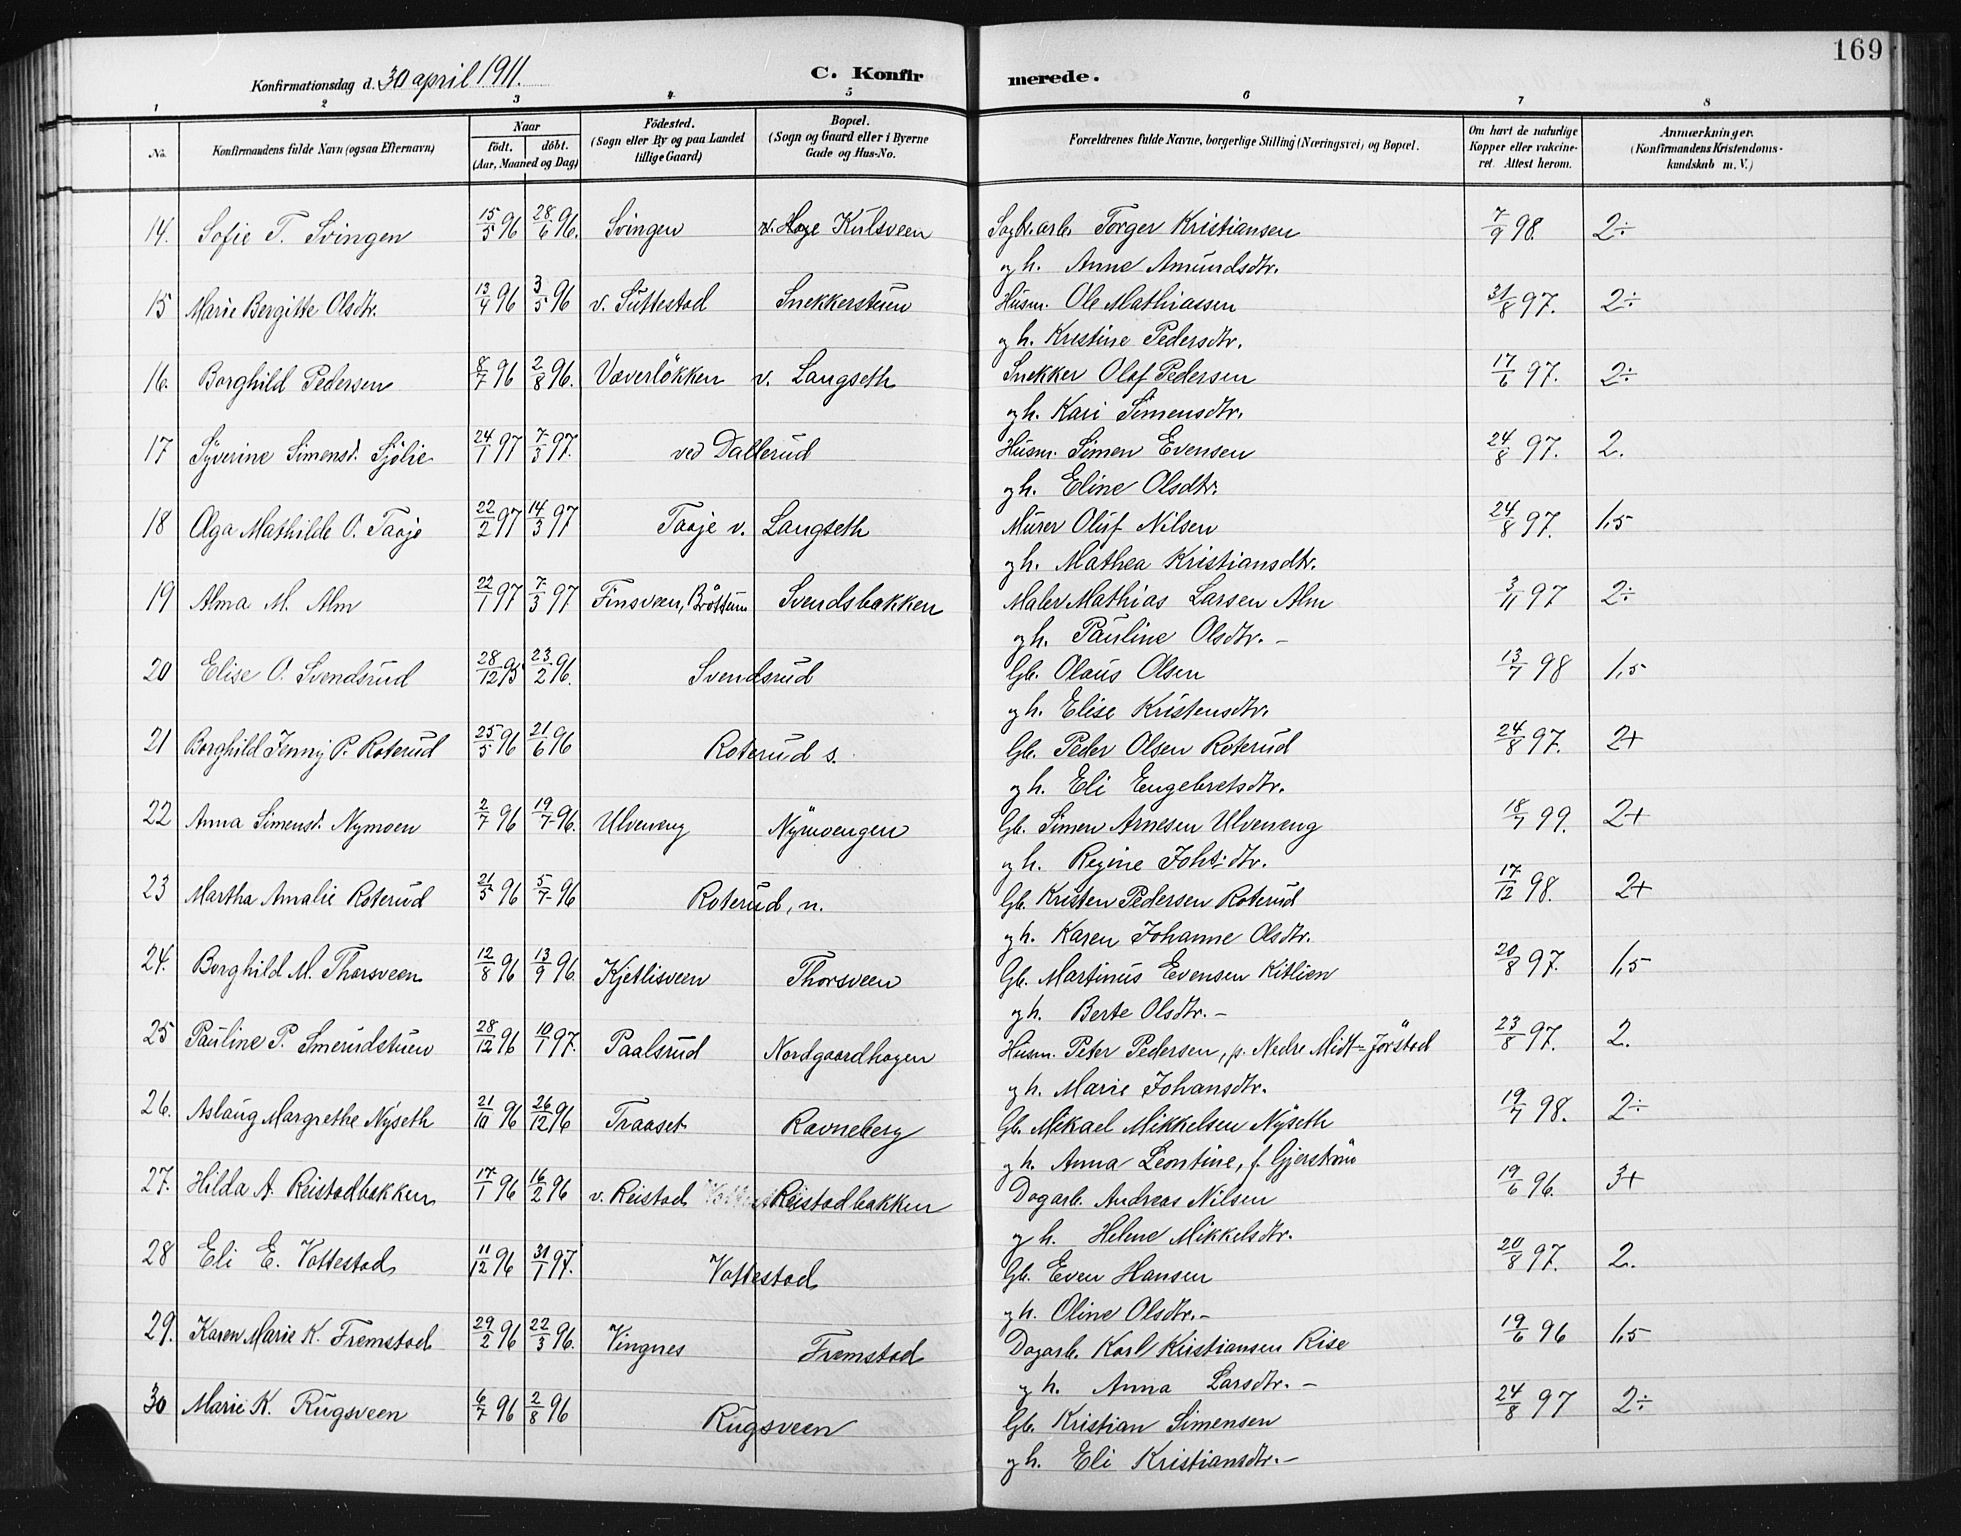 169
Konfirmationsdag d. 30 april 1911.
C. Konfirmerede.
1 2 3 4 5 6 7 8
No. Konfirmandens fulde Navn (ogsaa Efternavn) Naar födt. döbt. (Aar, Maaned og Dag) Födested. (Sogn eller By og paa Landet tillige Gaard) Bopæl. (Sogn og Gaard eller i Byerne Gade og Hus-No. Forældrenes fulde Navne, borgerlige Stilling (Næringsvei) og Bopæl. Om havt de naturlige Kopper eller vakcineret. Attest herom. Anmærkninger. (Konfirmandens Kristendomskundskab m. V.)
14. Sofie T. Svingen 15/5 96 28/6 96. Svingen v. Hage Kulsveen Sagbr.arb. Torger Kristiansen 7/9 98. 2÷
og h. Anne Amundsdtr.
15 Marie Bergitte Olsdtr. 13/4 96 3/5 96 v. Suttestad Snekkerstuen Husm. Ole Mathiassen 31/8 97. 2÷
og h. Kristine Pedersdtr.
16. Borghild Pedersen 8/7 96 2/8 96. Væverlökken v. Langseth Snekker Olaf Pedersen 17/6 97. 2÷
og h. Kari Simensdtr.
17 Syverine Simensd. Sjölie 24/1 97 7/3 97. ved Dallerud Husm. Simen Evensen 24/8 97. 2.
og h. Eline Olsdtr.
18 Olga Mathilde O. Taaje 22/2 97 14/3 97 Taaje v. Langseth Murer Oluf Nilsen 24/8 97. 1,5
og h. Mathea Kristiansdtr.
19 Alma M. Alm 22/1 97 7/3 97 Finsveen, Bröttum Svendsbakken Maler Mathias Larsen Alm 3/11 97 2÷
og h. Pauline Olsdtr. –
20 Elise O. Svendsrud 28/12 95 23/2 96. Svendsrud Gb. Olaus Olsen 13/7 98 1,5
og h. Elise Kristensdtr.
21 Borghild Jenny P. Roterud 25/5 96 21/6 96 Roterud s. Gb. Peder Olsen Roterud 24/8 97. 2+
og h. Eli Engebretsdtr.
22 Anna Simensd. Nymoen 2/7 96 19/7 96. Ulveneng Nymoengen Gb. Simen Arnesen Ulveneng 18/7 99. 2+
og h. Regine Johs.dtr.
23 Martha Amalie Roterud 21/5 96 5/7 96 Roterud, n. Gb. Kristen Pedersen Roterud 17/12 98. 2+
og h. Karen Johanne Olsdtr.
24. Borghild M. Thorsveen 12/8 96 13/9 96. Kjetlisveen Thorsveen Gb. Martinus Evensen Kitlien 20/8 97. 1,5
og h. Berte Olsdtr. –
25 Pauline P. Smerudstuen 28/12 96 10/1 97. Paalsrud Nordgaardhagen Husm. Peter Pedersen, p. Nedre Midt-Jörstad 23/8 97. 2.
og h. Marie Johansdtr.
26. Aslaug Margrethe Nyseth 21/10 96 26/12 96 Traaset Ravneberg Gb. Mikael Mikkelsen Nyseth 19/7 98. 2÷
og h. Anna Leontine, f. Gjerström
27. Hilda A. Reistadbakken 17/1 96 16/2 96 v. Reistad Reistadbakken Dagarb. Andreas Nilsen 19/6 96. 3+
og h. Helene Mikkelsdtr.
28 Eli E. Vottestad 11/12 96 31/1 97. Vottestad Gb. Even Hansen 20/8 97. 2.
og h. Oline Olsdtr. –
29. Karen Marie K. Fremstad 29/2 96 22/3 96. Vingnes Fremstad Dagarb. Karl Kristiansen Rise 19/6 96 1,5
og h. Anna Larsdtr. –
30 Marie K. Rugsveen 6/7 96 2/8 96 Rugsveen Gb. Kristian Simensen 24/8 97 2÷
og h. Eli Kristiansdtr. –